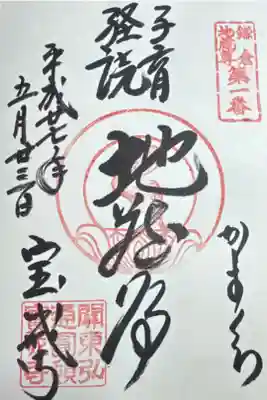 鎌倉
地蔵尊
第一番
子育
経読
地蔵尊
かまくら
宝戒寺
平成廿七年
五月廿三日
關東弘
寶戒寺